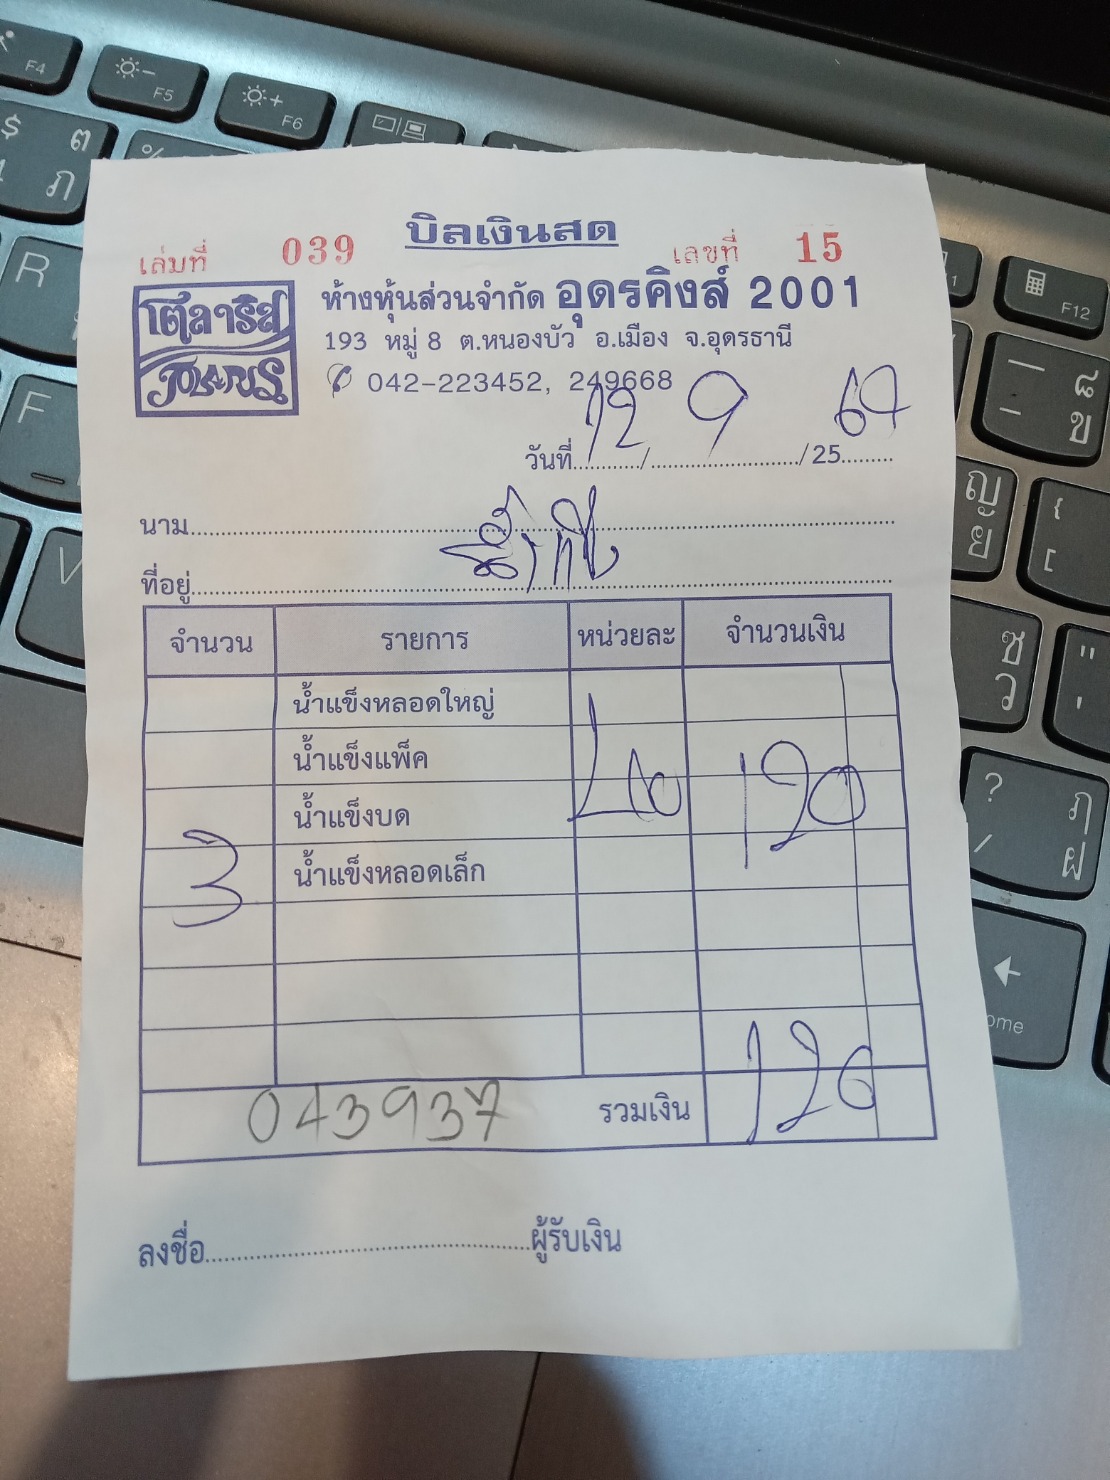 บิลเงินสด
เล่มที่ 039 เลขที่ 15
โตลาริส
ห้างหุ้นส่วนจำกัด อุดรคิงส์ 2001
193 หมู่ 8 ต.หนองบัว อ.เมือง จ.อุดรธานี
042-223452, 249668
วันที่ 12 / 9 / 25 67
นาม
ที่อยู่
จำนวน รายการ หน่วยละ จำนวนเงิน
น้ำแข็งหลอดใหญ่
น้ำแข็งแพ็ค
น้ำแข็งบด 40 120
3 น้ำแข็งหลอดเล็ก
043937 รวมเงิน 120
ลงชื่อ ผู้รับเงิน
F4 F5 F6 F12
$ ต
% 
4 ภ
R
F
V
ญ
ย
ซ
ว
?
/
ภ
ฝ
ข